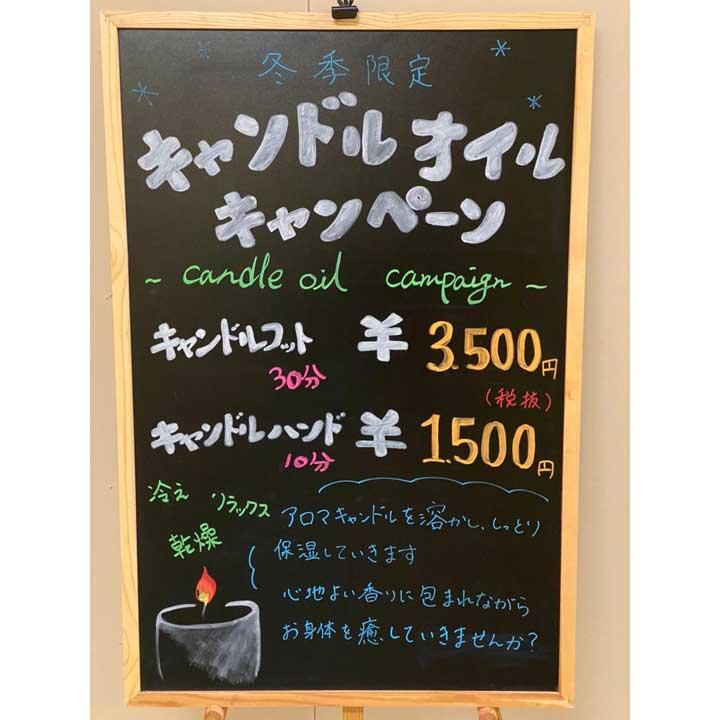 冬季限定
キャンドルオイル
キャンペーン
~ candle oil campaign ~
キャンドルフット ¥3.500円
30分
(税抜)
キャンドルハンド ¥1.500円
10分
冷え リラックス
乾燥
アロマキャンドルを溶かし、しっとり
保湿していきます
心地よい香りに包まれながら
お身体を癒していきませんか?